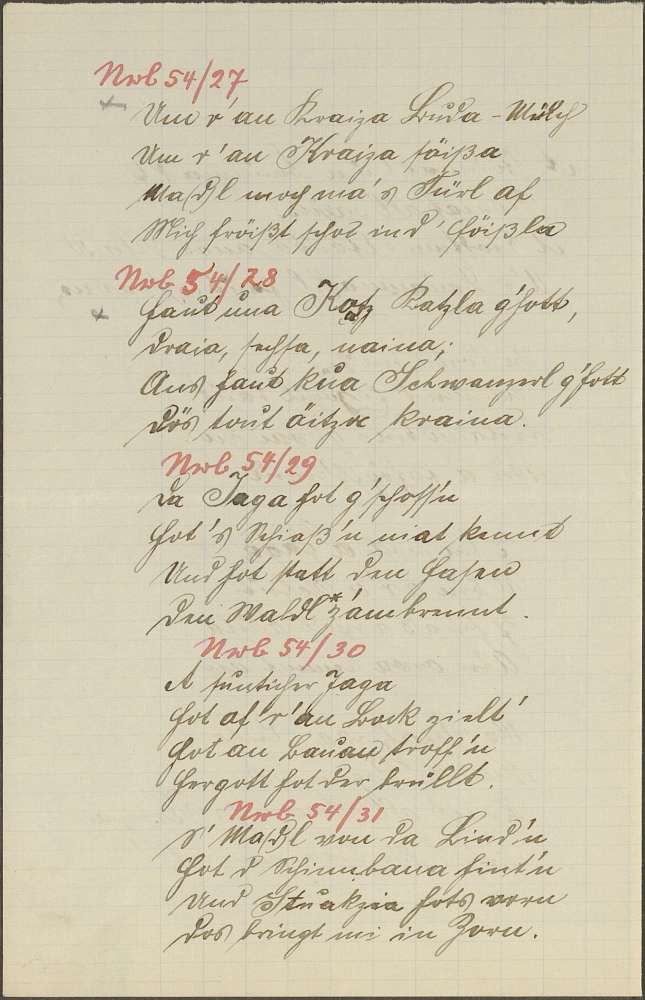 Nrb 54/27
Um r'an Kraiza Buda-Mülch
Um r'an Kraiza söißa
Madl moch ma's Türl af
Mich fröißt schos in d' Föißla
Nrb 54/28
Haut una Kotz Katzla g'hott,
draia, sechsa, naina;
Ans haut kua Schwanzerl g'hott
dös tout äitza kraina.
Nrb 54/29
Da Jaga hot g'schoss'n
Hot's Schiaß'n niat kennt
Und hot statt den Hasen
Den Waldl* z'ambrennt.
Nrb 54/30
A sunticher Jaga
Hot af'r'an Bock zielt
Hot an Bauan troff'n
Hergott hot der brüllt.
Nrb 54/31
S' Madl von da Lind'n
Hot d Schinnbana hint'n
Und Stuakzia hots vorn
Dos bringt mi in Zorn.